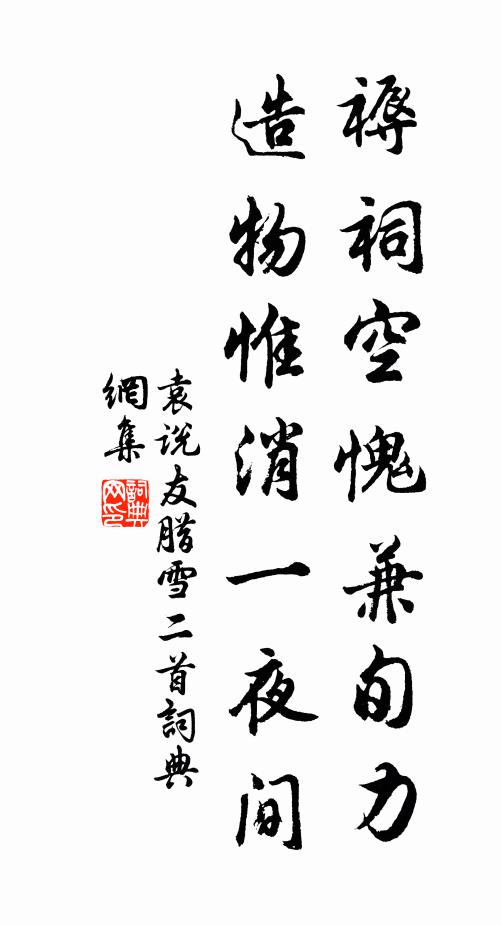 禱祠空愧兼旬力
造物惟消一夜間
袁說友腊雪二首詞典
網集
詞典
网印